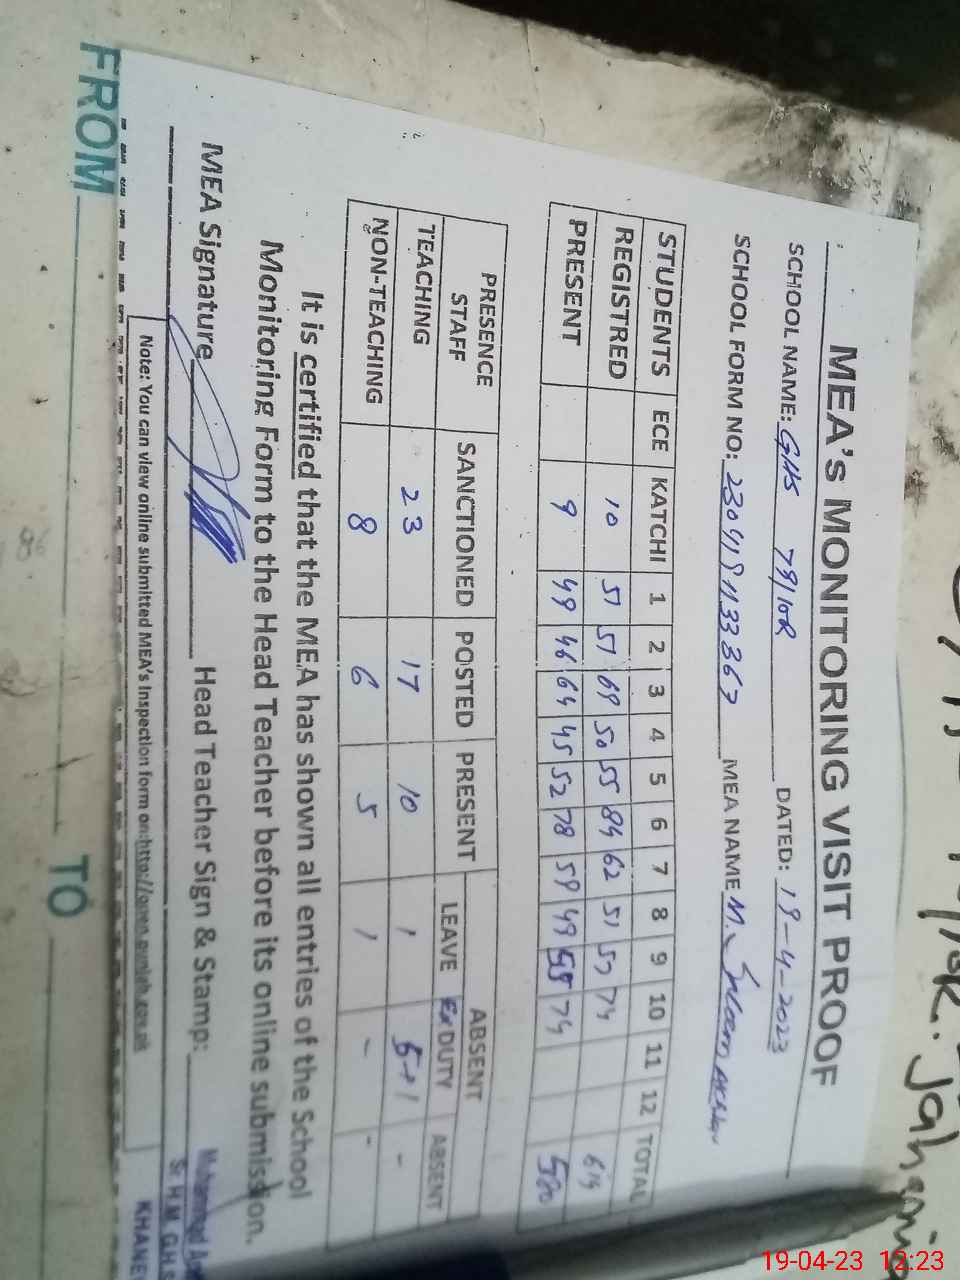 Jahania
MEA's MONITORING VISIT PROOF
SCHOOL NAME: GHS 79/10R DATED: 19-4-2023
SCHOOL FORM NO: MEA NAME M. Saleem
STUDENTS ECE KATCHI 1 2 3 4 5 6 7 8 9 10 11 12 TOTAL
REGISTRED 10 51 51 69 50 55 84 62 51 57 74 614
PRESENT 9 49 46 64 45 52 78 59 49 55 74 580
PRESENCE STAFF SANCTIONED POSTED PRESENT ABSENT
LEAVE Ex DUTY ABSENT
TEACHING 23 17 10 1 5+1 -
NON-TEACHING 8 6 5 1 - -
It is certified that the MEA has shown all entries of the School
Monitoring Form to the Head Teacher before its online submission.
MEA Signature Head Teacher Sign & Stamp:
Muhammad
Sr. H.M. G.H.S
KHANEW
Note: You can view online submitted MEA's Inspection form on:http://open.punjab.gov.pk
FROM TO
19-04-23 12:23